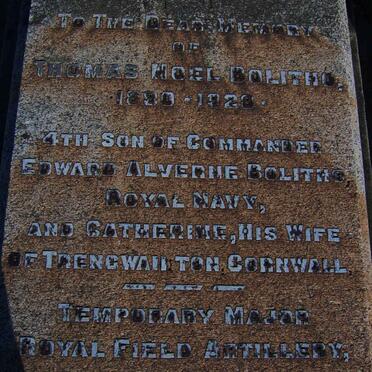 TO THE DEAR MEMORY
OF
THOMAS NOEL BOLITHO,
1890-1928.
4TH SON OF COMMANDER
EDWARD ALVERNE BOLITHO,
ROYAL NAVY,
AND CATHERINE, HIS WIFE
OF TRENGWAINTON, CORNWALL.
TEMPORARY MAJOR
ROYAL FIELD ARTILLERY,